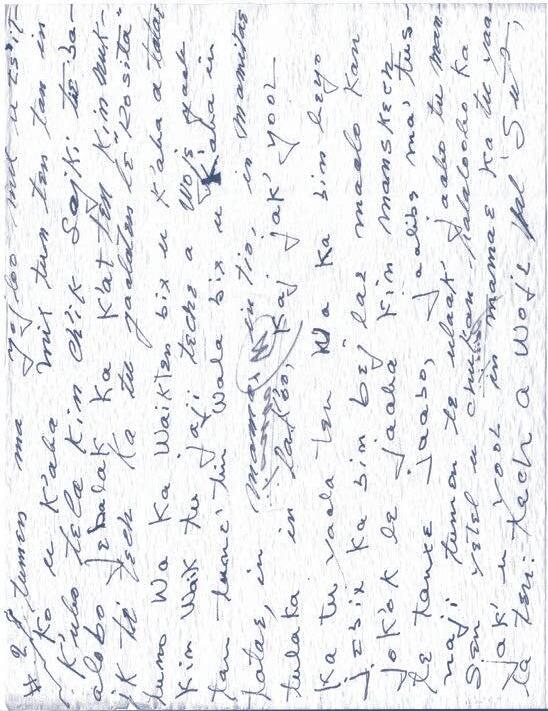 # 2 § tumen ma yojloo mix u es'it-
ko u k'aba mix tun ten tan in
k'ubo tela kin ch'ik Sajki te ba-
alobo Jebalak ka k'at ten kin nuk-
ik te tech ka tu yaalaten le Rosita
tumo Wa ka Waikten bix u k'aba a tatas
kin Waik tu jaji teche a Woje yaak
tan tumé tin Wala bix u k'aba in
tatae, in mamae in tio, in mamitas
tulaka in lak'eo, kaj jak' yool
ka tu yaala ten Wa ka bin beyo
jebix ka bin bejlae maalo kan
Jok'ok le jaaba kin manskech
te tanxe jaabo, Jaalibe ma' tus-
naji tumen te ulaak' jaabo tu man-
sen yetel u chukan Palaloobo ka
jak' u Yool in mamae ka tu yaa
la ten: tech a Woje